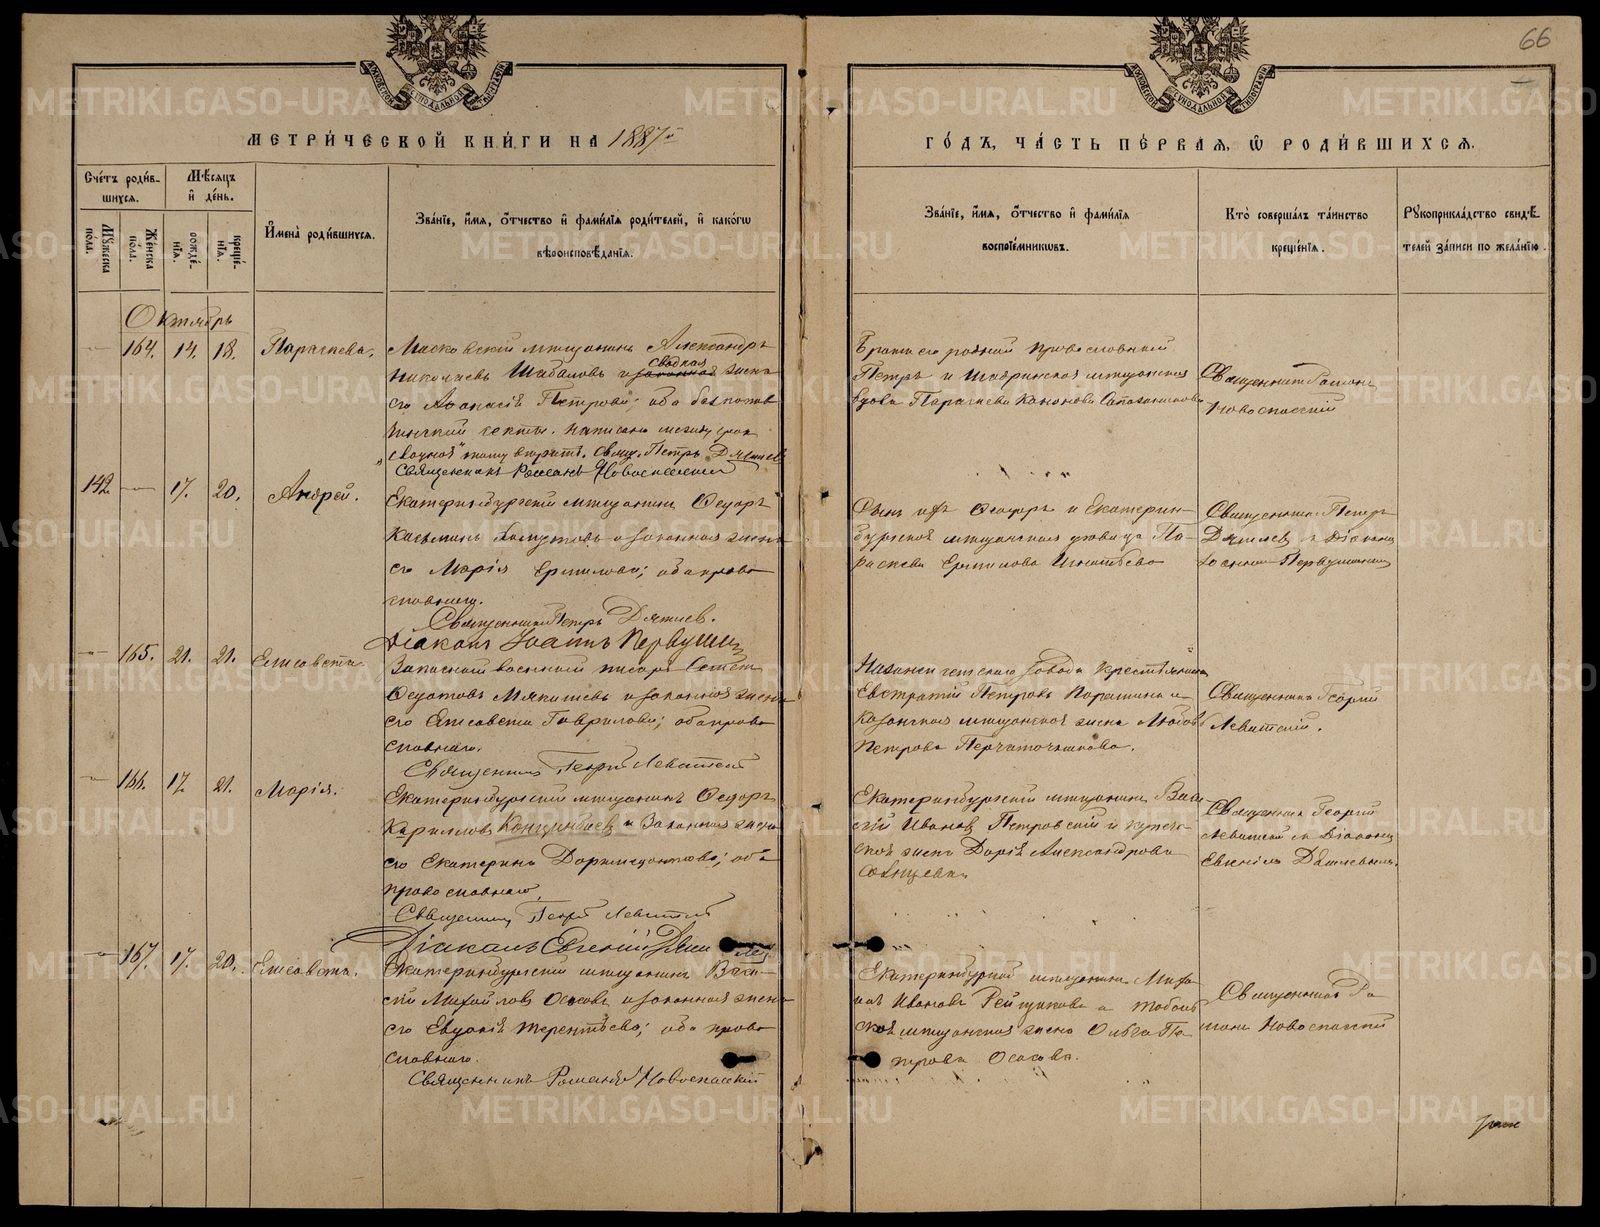 66
МЕТРИ́ЧЕСКОЙ КНИ́ГИ НА 1887й
ГО́ДЪ, ЧА́СТЬ ПЕ́РВАЯ, Ѡ РОДИ́ВШИХСЯ.
Сче́тъ роди́в-
шихся.
Му́жеска
по́ла.
Же́нска
по́ла.
Мѣ́сяцъ
и҆ де́нь.
рожде́-
нїя.
креще́-
нїя.
И҆мена̀ роди́вшихся.
Зва́нїе, и҆́мя, ѻ҆́тчество и҆ фами́лїя роди́телей, и҆ како́гѡ
вѣроисповѣ́данїя.
Зва́нїе, и҆́мя, ѻ҆́тчество и҆ фами́лїя
воспрїе́мниковъ.
Кто̀ соверша́лъ та́инство
креще́нїя.
Рꙋкоприкла́дство свидѣ́-
телей за́писи по жела́нїю.
Октябрь
164. 14. 18. Параскева.
Московскій мѣщанинъ Александръ
Николаевъ Шабаловъ и законная сводная жена
его Аѳанасія Петрова; оба безпопов
щинской секты. Написано между строк
„сводная“ тому вѣрить. Свящ. Петръ Дягилев
Священникъ Романъ Новоспасскій
Братъ его родной православный
Петръ и Шадринская мѣщанская
вдова Параскева Канонова Сапожникова
Священникъ Романъ
Новоспасскій
142. 17. 20. Андрей.
Екатеринбургскій мѣщанинъ Ѳедоръ
Касьминъ и законная жена
его Марія Ермилова; оба право
славные.
Священникъ Петръ Дягилев.
Діаконъ Іоаннъ Первушин
Сынъ ихъ Ѳедоръ и Екатерин-
бургская мѣщанская дѣвица Па-
раскева Ермилова Игнатьева
Священникъ Петръ
Дягилевъ и Діаконъ
Іоаннъ Первушинъ
165. 21. 21. Елисавета.
Запасной военный писарь
Ѳедотовъ Мякишевъ и законная жена
его Елисавета Гаврилова; оба право
славные.
Священникъ Георгій Левитскій
завода крестьянинъ
Евстратій Петровъ и
Казанская мѣщанская жена Любовь
Петрова Перчаточникова.
Священникъ Георгій
Левитскій.
166. 17. 21. Марія.
Екатеринбургскій мѣщанинъ Ѳедоръ
Кирилловъ и Законная жена
его Екатерина Доримедонтова; оба
православные.
Священникъ Георгій Левитскій
Діаконъ Евгеній
Екатеринбургскій мѣщанинъ Васи
лій Ивановъ Петровскій и купече-
ская жена Дарія Александрова
Священникъ Георгій
Левитскій и Діаконъ
Евгеній
167. 17. 20. Елисавета.
Екатеринбургскій мѣщанинъ Васи-
лій Михайловъ Осасовъ и законная жена
его Евдокія Терентьева; оба право
славные.
Священникъ Романъ Новоспасскій
Екатеринбургскій мѣщанинъ Миха-
илъ Ивановъ и Тоболь
ская мѣщанская жена Ольга Пе-
трова Осасова.
Священникъ Ро
манъ Новоспасскій
METRIKI.GASO-URAL.RU